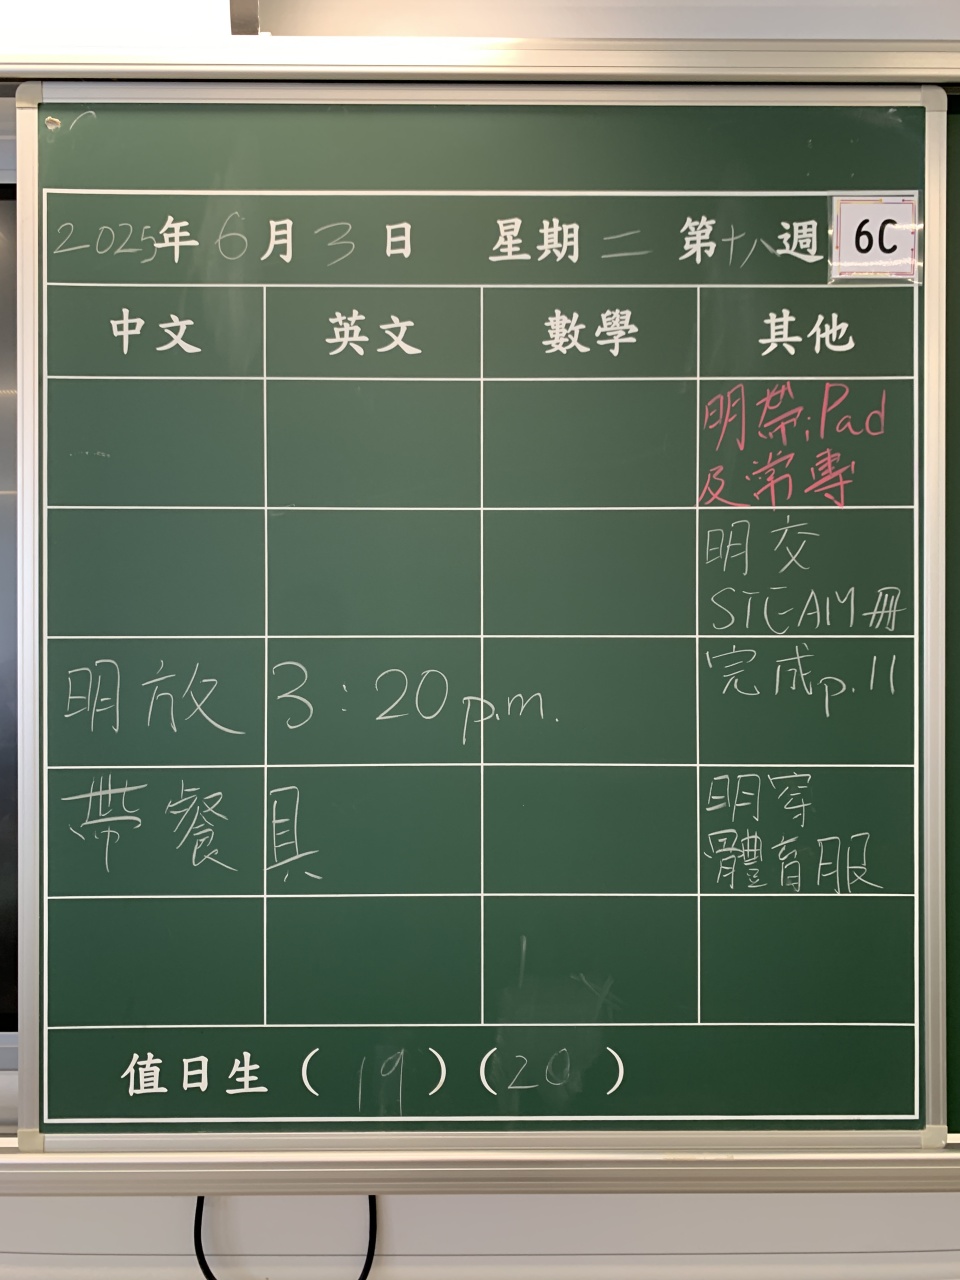 2025年6月3日 星期二 第十八週 6C
中文 英文 數學 其他
明帶iPad
及常專
明交
STEAM冊
完成p.11
明放 3:20p.m.
帶餐具
明穿
體育服
值日生(19)(20)